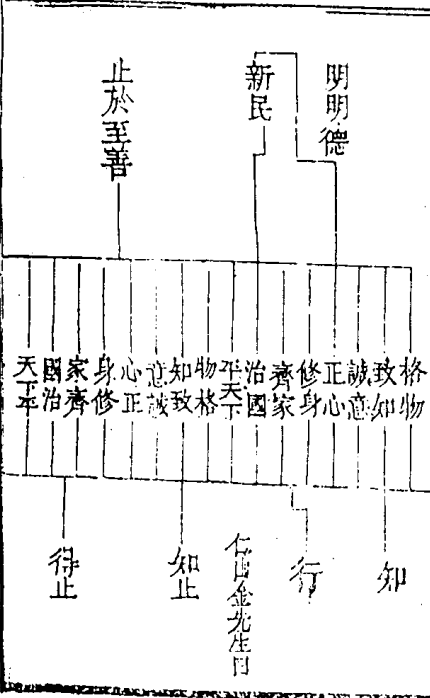 明明德
新民
止於至善
格物
致知
誠意
正心
修身
齊家
治國
平天下
物格
知致
意誠
心正
身修
家齊
國治
天下平
知
行
仁山金先生曰
知止
得止